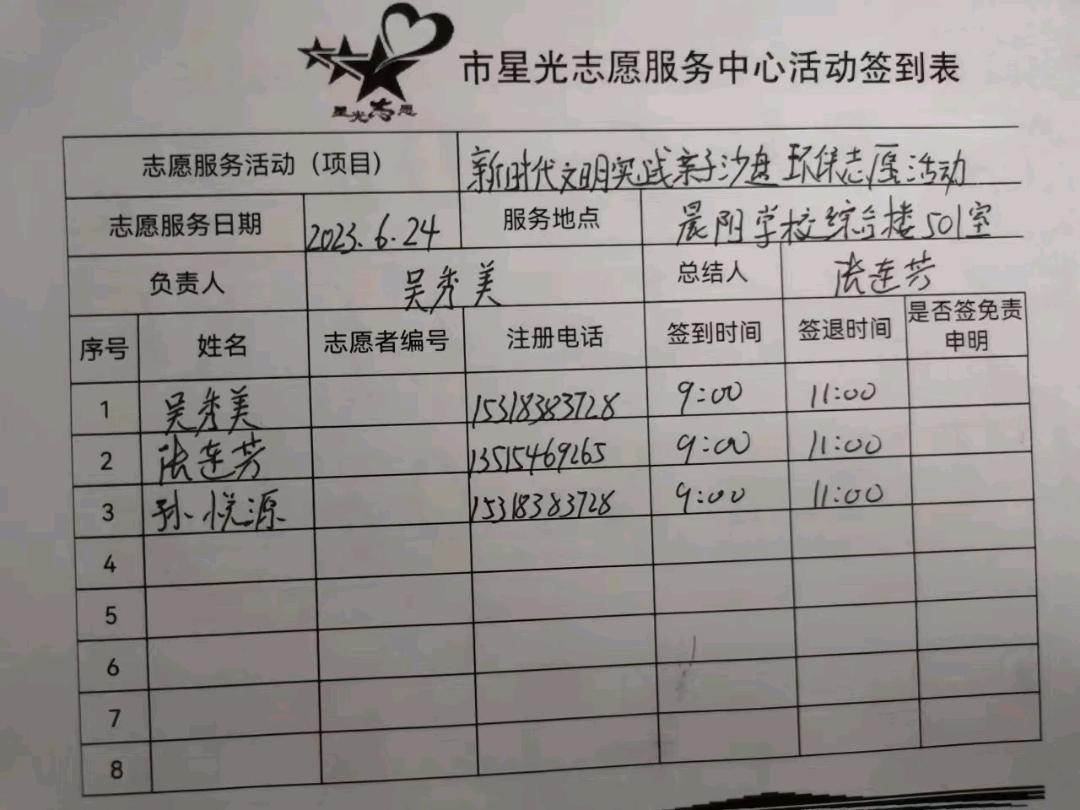 市星光志愿服务中心活动签到表
星光志愿
志愿服务活动（项目） 新时代文明实践亲子沙盘环保志愿活动
志愿服务日期 2023.6.24 服务地点 晨阳学校综合楼501室
负责人 吴秀美 总结人 张连芳
序号 姓名 志愿者编号 注册电话 签到时间 签退时间 是否签免责
申明
1 吴秀美 15318383728 9:00 11:00
2 张连芳 13515469265 9:00 11:00
3 孙悦源 15318383728 9:00 11:00
4
5
6
7
8